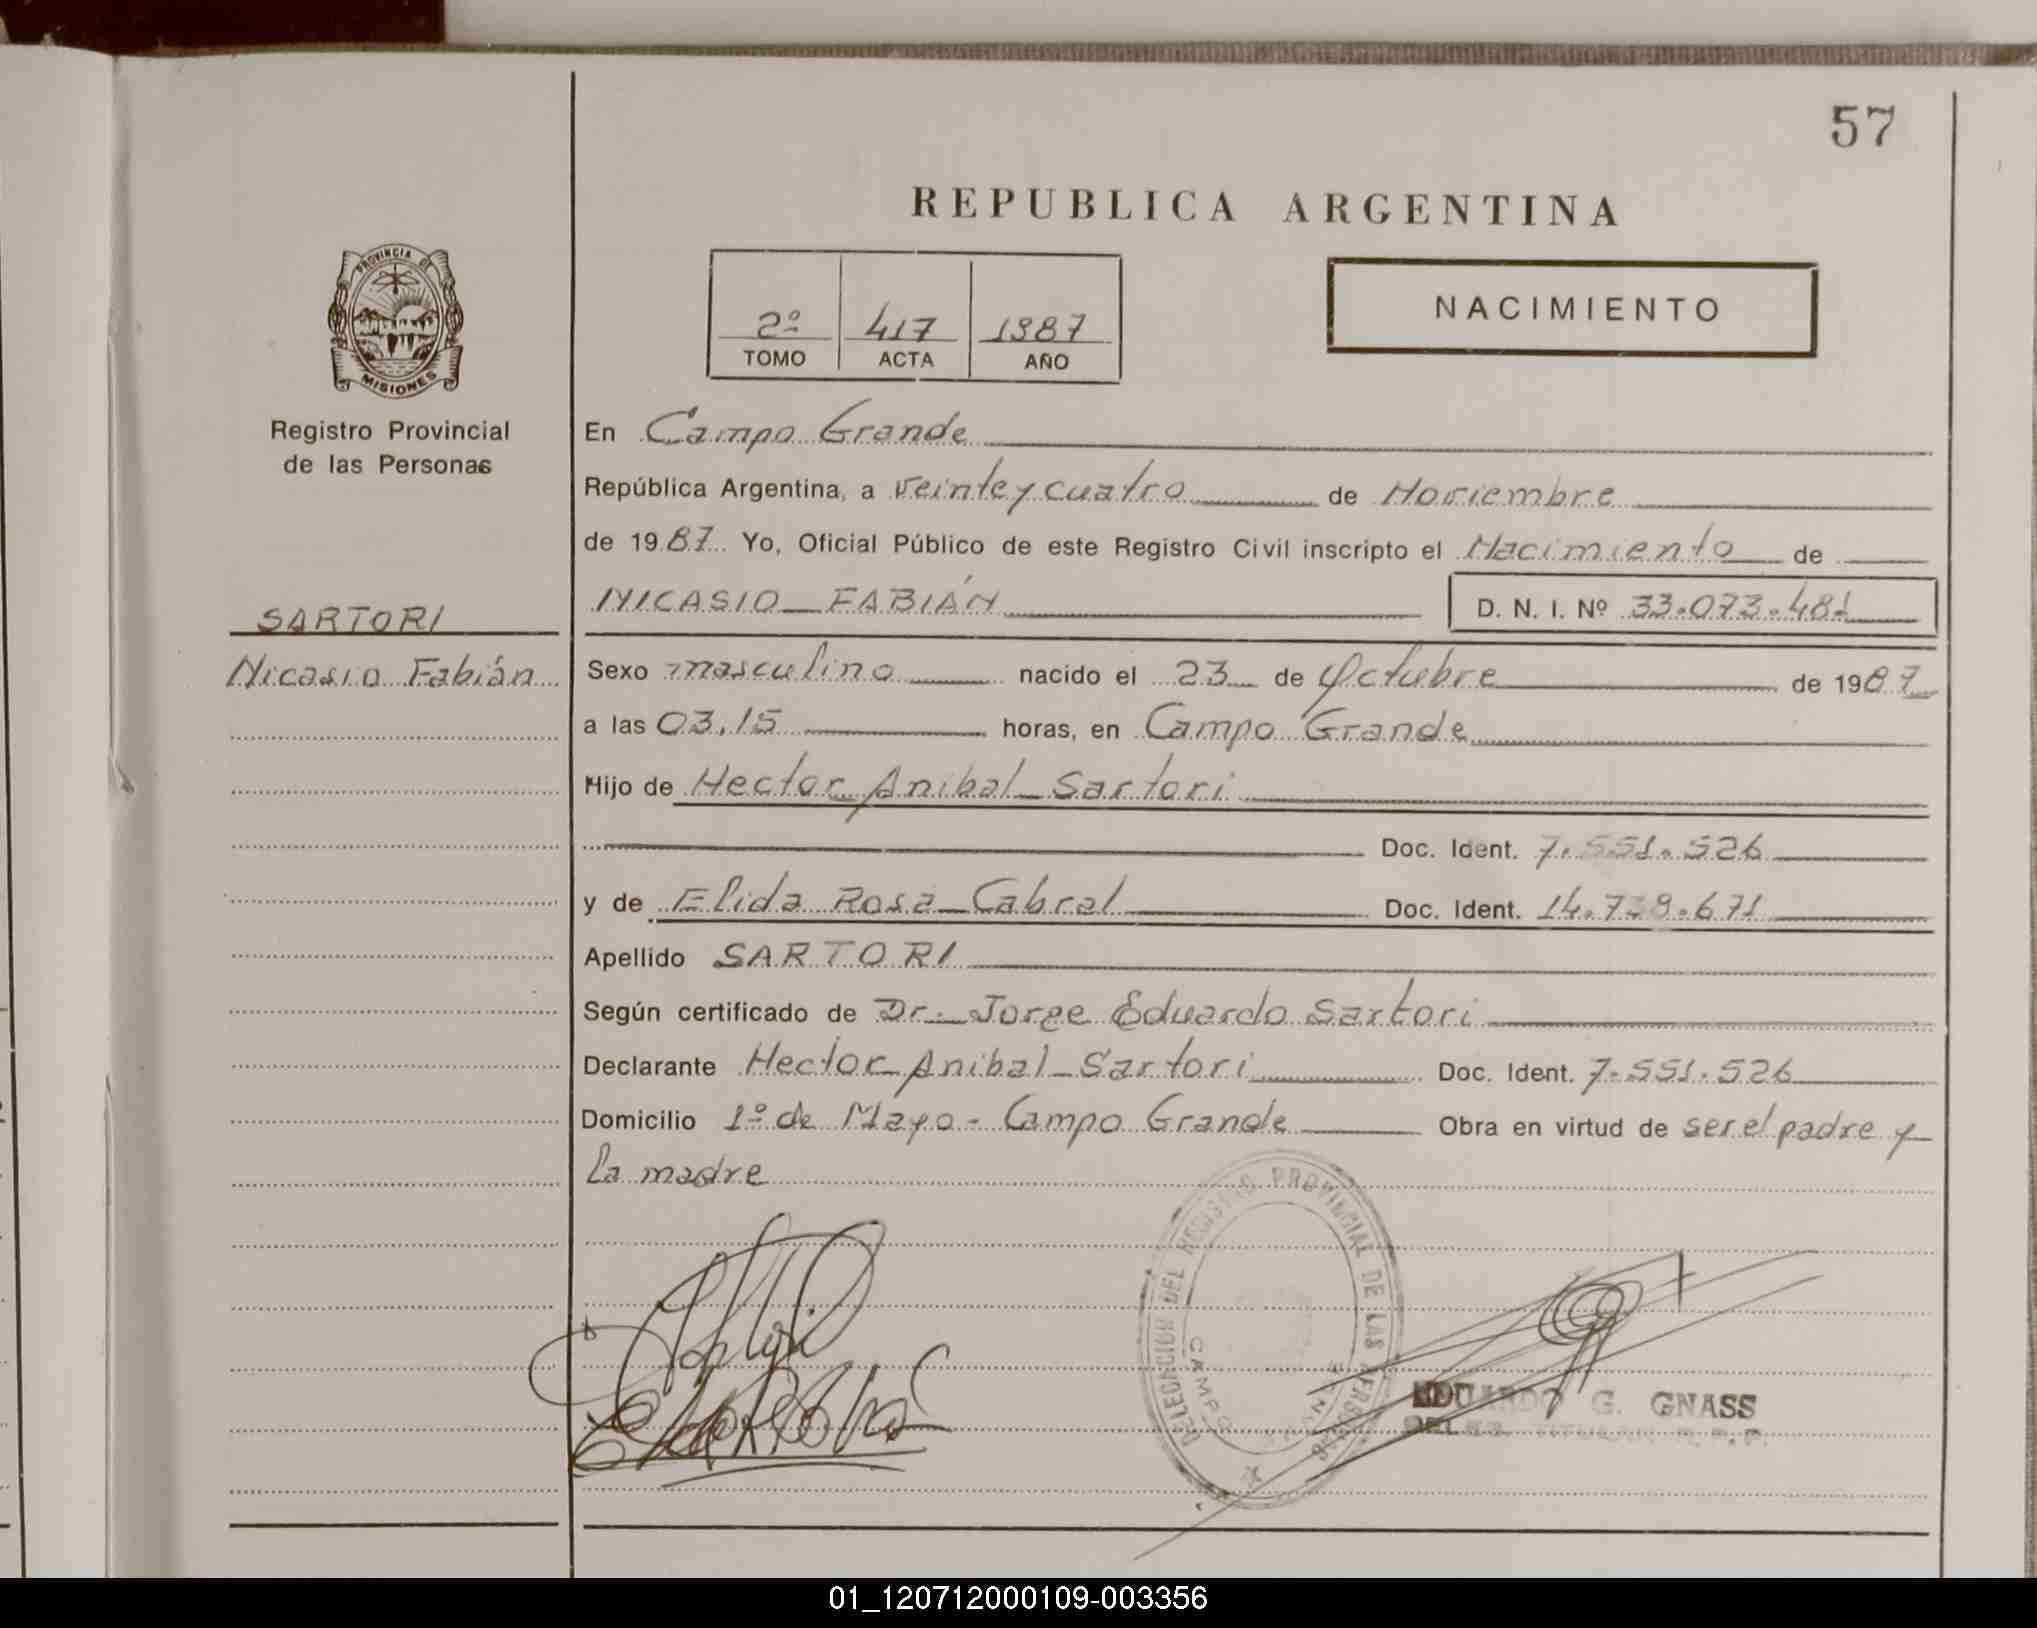 57
REPUBLICA ARGENTINA
PROVINCIA DE
MISIONES
Registro Provincial
de las Personas
2º 417 1987
TOMO ACTA AÑO
NACIMIENTO
En Campo Grande
República Argentina, a veinte y cuatro de Noviembre
de 1987 Yo, Oficial Público de este Registro Civil inscripto el Nacimiento de
SARTORI
NICASIO FABIÁN D. N. I. Nº 33.073.481
Nicasio Fabián
Sexo masculino nacido el 23 de Octubre de 1987
a las 03,15 horas, en Campo Grande
Hijo de Hector Anibal Sartori
Doc. Ident. 7.551.526
y de Elida Rosa Cabral Doc. Ident. 14.738.671
Apellido SARTORI
Según certificado de Dr. Jorge Eduardo Sartori
Declarante Hector Anibal Sartori Doc. Ident. 7.551.526
Domicilio 1º de Mayo - Campo Grande Obra en virtud de ser el padre y
la madre
DELEGACION DEL REGISTRO PROVINCIAL DE LAS PERSONAS
CAMPO GRANDE
EDUARDO G. GNASS
TITULAR R. P. P.
01_120712000109-003356